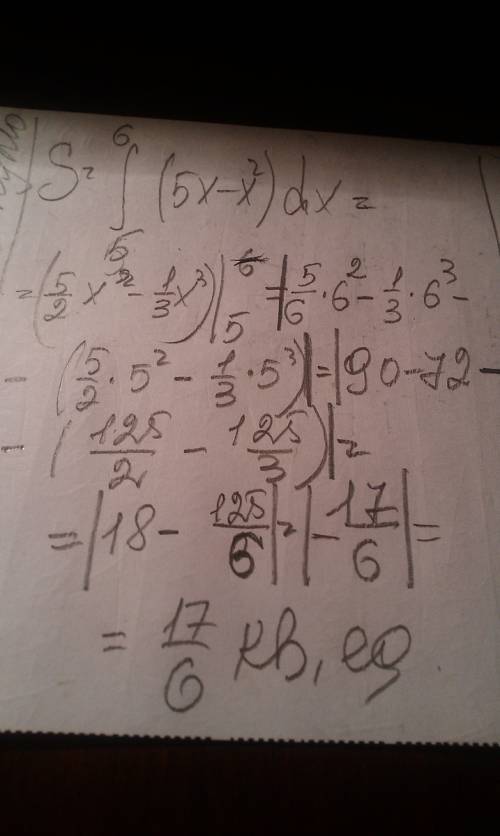 S = ∫₅⁶ (5x - x²) dx =
= (5/2 x² - 1/3 x³) |₅⁶ = |5/6 · 6² - 1/3 · 6³ -
- (5/2 · 5² - 1/3 · 5³)| = |90 - 72 -
- (125/2 - 125/3)| =
= |18 - 125/6| = |-17/6| =
= 17/6 кв, ед.